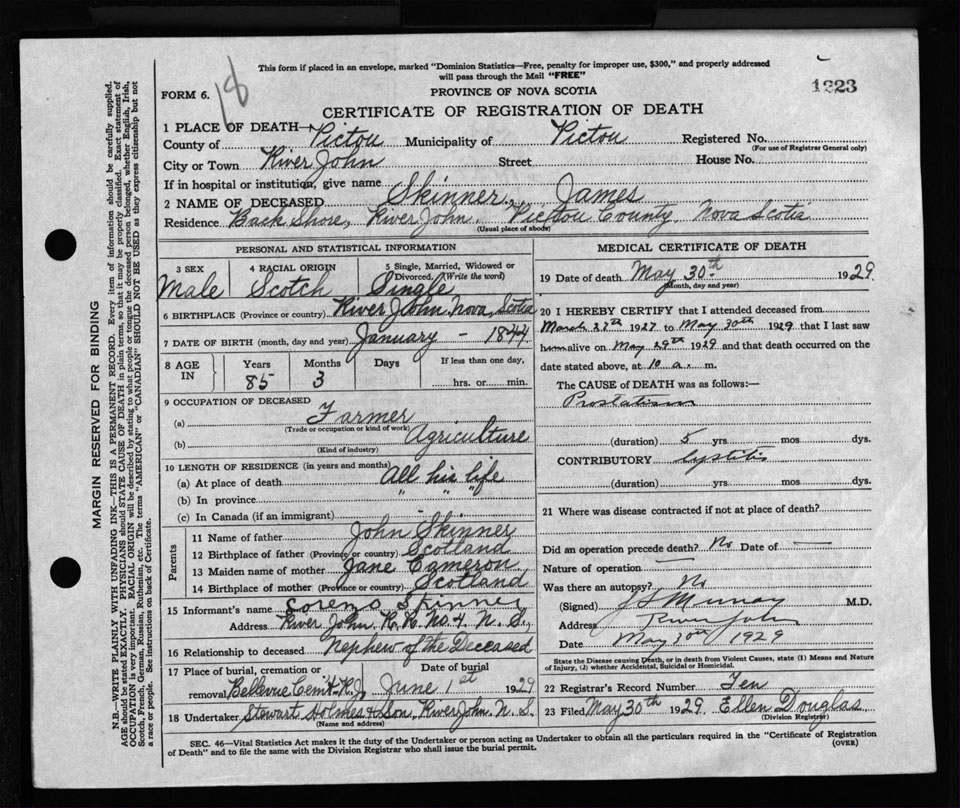 This form if placed in an envelope, marked "Dominion Statistics—Free, penalty for improper use, $300," and properly addressed
will pass through the Mail "FREE"
FORM 6. 18 PROVINCE OF NOVA SCOTIA 1223
CERTIFICATE OF REGISTRATION OF DEATH
1 PLACE OF DEATH—
County of Pictou Municipality of Pictou Registered No.
(For use of Registrar General only)
City or Town River John Street House No.
If in hospital or institution, give name
2 NAME OF DECEASED Skinner, James
Residence Back Shore, River John. Pictou County, Nova Scotia
(Usual place of abode)
PERSONAL AND STATISTICAL INFORMATION
3 SEX 4 RACIAL ORIGIN 5 Single, Married, Widowed or
Divorced. (Write the word)
Male Scotch Single
6 BIRTHPLACE (Province or country) River John, Nova Scotia
7 DATE OF BIRTH (month, day and year) January - 1844
8 AGE IN Years Months Days If less than one day,
85 3 hrs. or min.
9 OCCUPATION OF DECEASED
(a) Farmer
(Trade or occupation or kind of work)
(b) Agriculture
(Kind of industry)
10 LENGTH OF RESIDENCE (in years and months)
(a) At place of death All his life
(b) In province " " "
(c) In Canada (if an immigrant) -
Parents
11 Name of father John Skinner
12 Birthplace of father (Province or country) Scotland
13 Maiden name of mother Jane Cameron
14 Birthplace of mother (Province or country) Scotland
15 Informant's name Soreno Skinner
Address River John. R.R. No. 4. N. S.
16 Relationship to deceased Nephew of the Deceased
17 Place of burial, cremation or Date of burial
removal Bellevue Cem't. R.J. June 1st 1929
18 Undertaker Stewart Holmes & Son, River John. N. S.
(Name and address)
MEDICAL CERTIFICATE OF DEATH
19 Date of death May 30th 1929
(Month, day and year)
20 I HEREBY CERTIFY that I attended deceased from
March 27th 1927 to May 30th 1929 that I last saw
him alive on May 29th 1929 and that death occurred on
date stated above, at 10 a. m.
The CAUSE OF DEATH was as follows:—
Prostatism
(duration) 5 yrs. mos. dys.
CONTRIBUTORY Cystitis
(duration) yrs. mos. dys.
21 Where was disease contracted if not at place of death?
Did an operation precede death? No Date of —
Nature of operation —
Was there an autopsy? No
(Signed) Murray M.D.
Address River John
Date May 30th 1929
State the Disease causing Death, or in death from Violent Causes, state (1) Means and Nature
of Injury, (2) whether Accidental, Suicidal or Homicidal.
22 Registrar's Record Number Ten
23 Filed May 30th 1929. Ellen Douglas
(Division Registrar)
SEC. 46—Vital Statistics Act makes it the duty of the Undertaker or person acting as Undertaker to obtain all the particulars required in the "Certificate of Registration
of Death" and to file the same with the Division Registrar who shall issue the burial permit. (OVER)
MARGIN RESERVED FOR BINDING
N.B.—WRITE PLAINLY WITH UNFADING INK—THIS IS A PERMANENT RECORD. Every item of information should be carefully supplied.
AGE should be stated EXACTLY. PHYSICIANS should STATE CAUSE OF DEATH in plain terms, so that it may be properly classified. Exact statement of
OCCUPATION is very important. RACIAL ORIGIN will be described by stating to what people or tongue the deceased person belonged, whether English, Irish,
Scotch, French, German, Russian, Ruthenian, etc. The terms "AMERICAN" or "CANADIAN" SHOULD NOT BE USED as they express citizenship but not
a race or people. See instructions on back of Certificate.